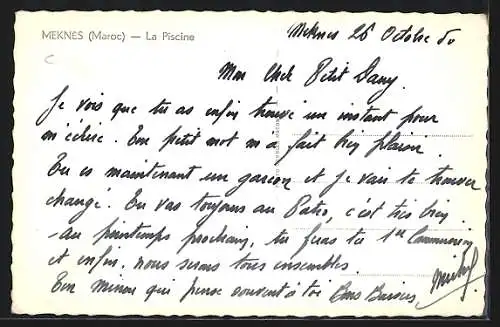 MEKNES (Maroc) — La Piscine
Meknes 26 Octobre 50
Mon cher Petit Dany.
Je vois que tu as enfin trouvé un instant pour
m'écrire. Ton petit mot m'a fait bien plaisir.
Tu es maintenant un garçon et je vais te trouver
changé. Tu vas toujours au Patro, c'est très bien
au printemps prochain, tu feras ta 1ère Communion
et enfin, nous serons tous ensembles.
Ton qui pense souvent à toi Bons Baisers